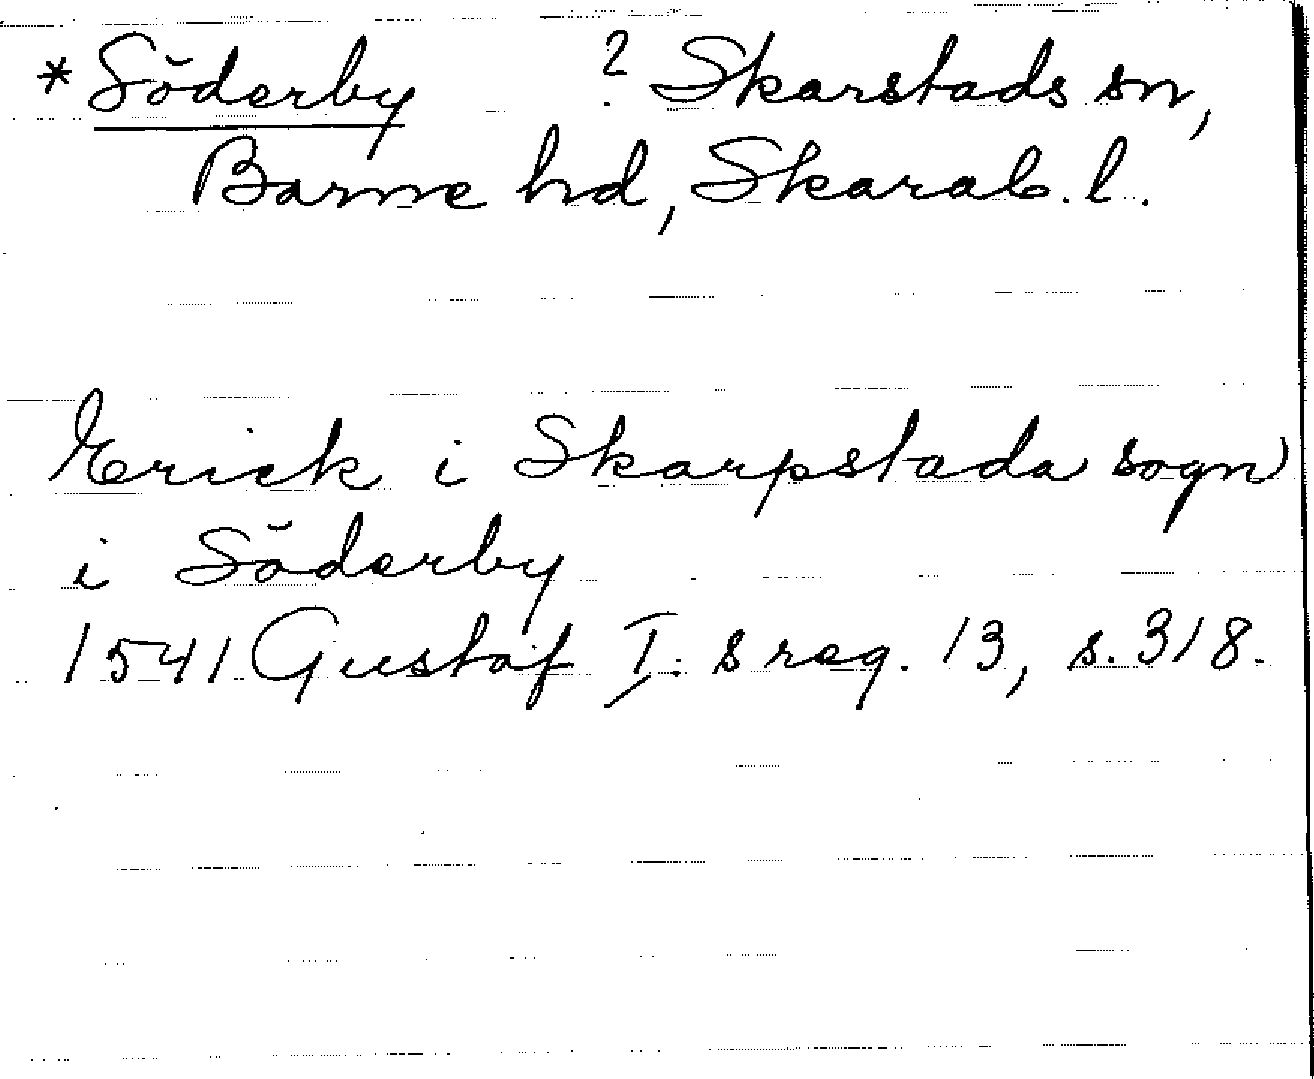 *Söderby ? Skarstads sn,
Barne hd, Skarab. l.
Erick i Skarpstada sogn
i Söderby
1541 Gustaf I:s reg. 13, s. 318.